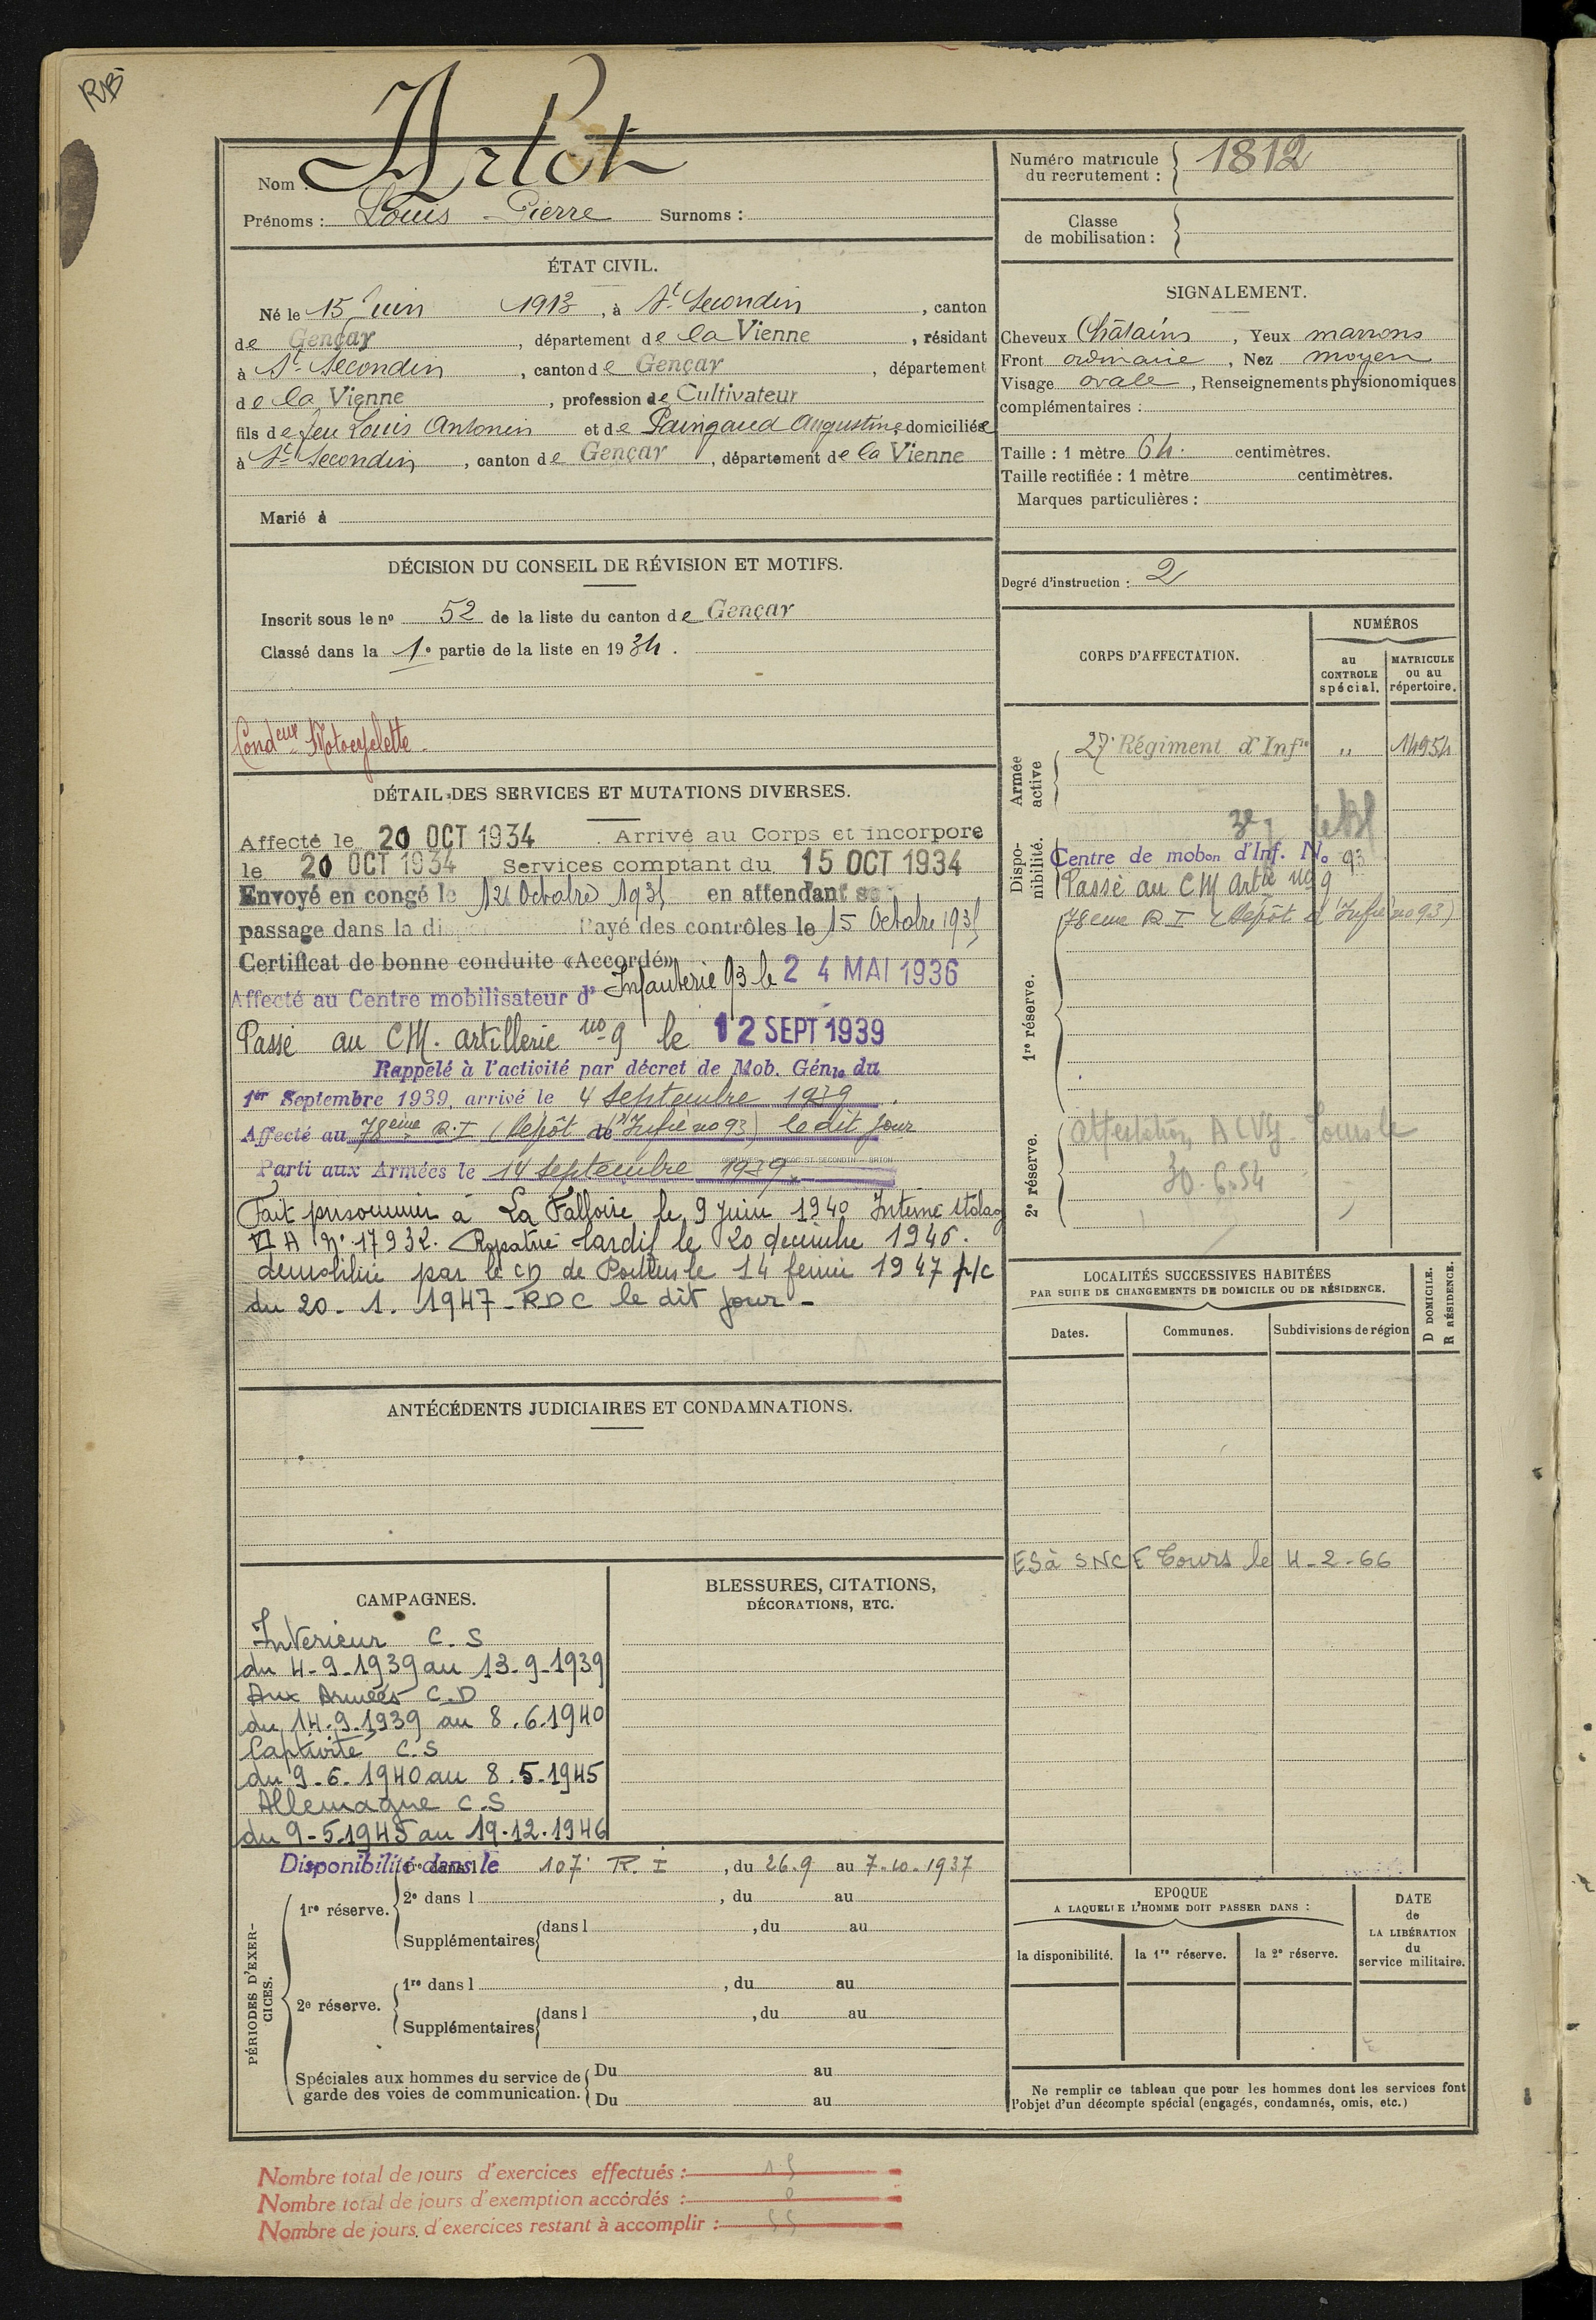 RB
Nom : Arlot
Prénoms : Louis Pierre Surnoms :
ÉTAT CIVIL.
Né le 15 Juin 1913, à St Secondin, canton
de Gençay, département de la Vienne, résidant
à St Secondin, canton de Gençay, département
de la Vienne, profession de Cultivateur
fils de feu Louis Antonin et de Paingaud Augustine domiciliés
à St Secondin, canton de Gençay, département de la Vienne
Marié à
DÉCISION DU CONSEIL DE RÉVISION ET MOTIFS.
Inscrit sous le no 52 de la liste du canton de Gençay
Classé dans la 1e partie de la liste en 1934.
Condeur Motocyclette
DÉTAIL DES SERVICES ET MUTATIONS DIVERSES.
Affecté le 20 OCT 1934. Arrivé au Corps et incorporé
le 20 OCT 1934 Services comptant du 15 OCT 1934
Envoyé en congé le Octobre 1935 en attendant
passage dans la Rayé des contrôles le 15 Octobre 1935
Certificat de bonne conduite «Accordé»
Affecté au Centre mobilisateur d' Infanterie 93 le 24 MAI 1936
Passé au CM. artillerie no 9 le 12 SEPT 1939
Rappelé à l'activité par décret de Mob. Génle du
1er Septembre 1939, arrivé le 4 Septembre 1939.
Affecté au 78eme R.I (Dépôt d'Infie no 93) le dit jour
Parti aux Armées le 14 Septembre 1939.
Fait prisonnier à La Falloise le 9 Juin 1940 Interné stalag
VI A No 17932. Rapatrié tardif le 20 decembre 1946.
demobilisé par le CD de Poitiers le 14 fevrier 1947 p/c
du 20-1.1947-RDC le dit jour-
ANTÉCÉDENTS JUDICIAIRES ET CONDAMNATIONS.
CAMPAGNES.
Interieur C.S
du 4-9-1939 au 13-9-1939
Aux Armées C.D
du 14.9.1939 au 8.6.1940
Captivité C.S
du 9-6-1940 au 8.5.1945
Allemagne C.S
du 9-5.1945 au 19.12.1946
BLESSURES, CITATIONS,
DÉCORATIONS, ETC.
PÉRIODES D'EXERCICES.
Disponibilité dans le 107e R.I, du 26.9 au 7.10.1937
1re réserve.
2e dans l, du au
Supplémentaires dans l, du au
2e réserve.
1re dans l, du au
Supplémentaires dans l, du au
Spéciales aux hommes du service de Du au
garde des voies de communication. Du au
Nombre total de jours d'exercices effectués : 15
Nombre total de jours d'exemption accordés : 0
Nombre de jours d'exercices restant à accomplir : 55
Numéro matricule
du recrutement : 1812
Classe
de mobilisation :
SIGNALEMENT.
Cheveux Châtains, Yeux marrons
Front ordinaire, Nez moyen
Visage ovale, Renseignements physionomiques
complémentaires :
Taille : 1 mètre 64 centimètres.
Taille rectifiée : 1 mètre centimètres.
Marques particulières :
Degré d'instruction : 2
CORPS D'AFFECTATION.
NUMÉROS
au
CONTROLE
spécial.
MATRICULE
ou au
répertoire.
Armée
active
27e Régiment d'Infie " 14954
Dispo-
nibilité.
Centre de mobon d'Inf. No 93
Passé au CM Artie no 9
78eme R I (Dépôt d'Infie no 93)
1re réserve.
2e réserve.
Attestation ACVG Tours le
30-6-54
LOCALITÉS SUCCESSIVES HABITÉES
PAR SUITE DE CHANGEMENTS DE DOMICILE OU DE RÉSIDENCE.
Dates. Communes. Subdivisions de région
D DOMICILE.
R RÉSIDENCE.
ES à SNCF Tours le 4-2-66
EPOQUE
A LAQUELLE L'HOMME DOIT PASSER DANS :
la disponibilité. la 1re réserve. la 2e réserve.
DATE
de
LA LIBÉRATION
du
service militaire.
Ne remplir ce tableau que pour les hommes dont les services font
l'objet d'un décompte spécial (engagés, condamnés, omis, etc.)